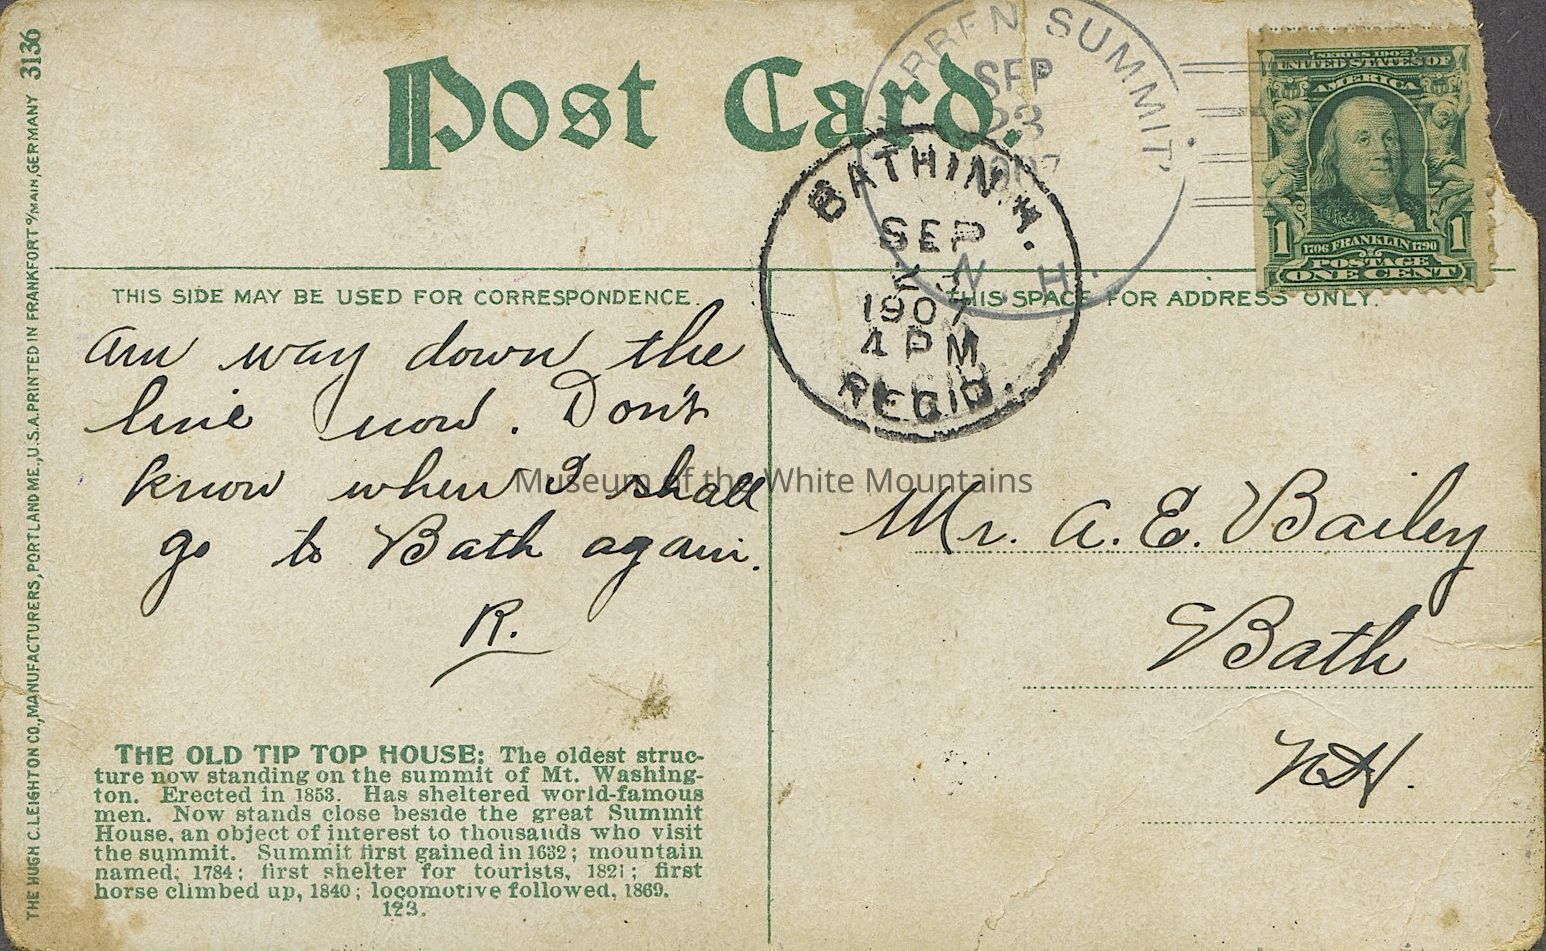 3136
THE HUGH C. LEIGHTON CO., MANUFACTURERS, PORTLAND ME., U.S.A. PRINTED IN FRANKFORT o/MAIN, GERMANY
Post Card.
RREN SUMMIT
SEP
23
1907
N. H.
SERIES 1902
UNITED STATES OF
AMERICA
1706 FRANKLIN 1790
1 1
POSTAGE
ONE CENT
BATH N.H.
SEP
23
1907
4 PM
REC'D.
THIS SIDE MAY BE USED FOR CORRESPONDENCE.
THIS SPACE FOR ADDRESS ONLY.
Am way down the
line now. Don't
know when I shall
go to Bath again.
R.
Museum of the White Mountains
Mr. A. E. Bailey
Bath
N.H.
THE OLD TIP TOP HOUSE: The oldest struc-
ture now standing on the summit of Mt. Washing-
ton. Erected in 1853. Has sheltered world-famous
men. Now stands close beside the great Summit
House, an object of interest to thousands who visit
the summit. Summit first gained in 1632; mountain
named, 1784; first shelter for tourists, 1821; first
horse climbed up, 1840; locomotive followed, 1869.
123.